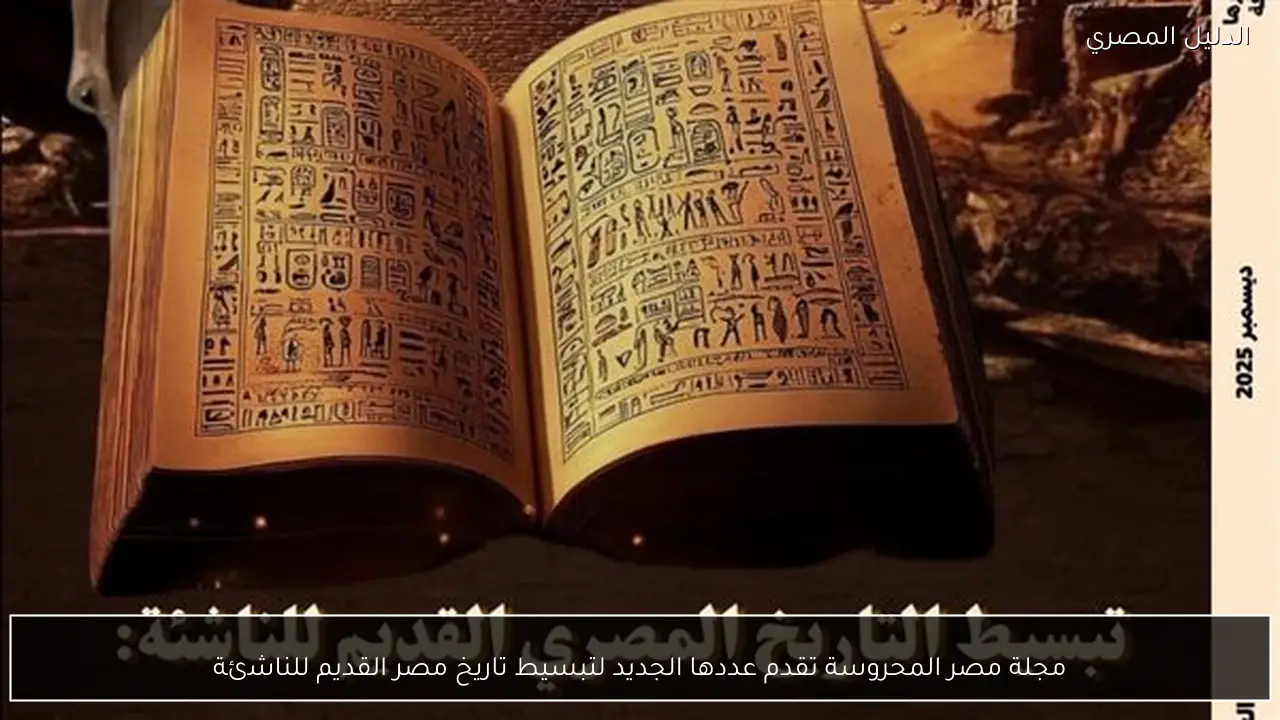 الدليل المصري
ديسمبر 2025
تبسيط التاريخ المصري القديم للناشئة:
مجلة مصر المحروسة تقدم عددها الجديد لتبسيط تاريخ مصر القديم للناشئة